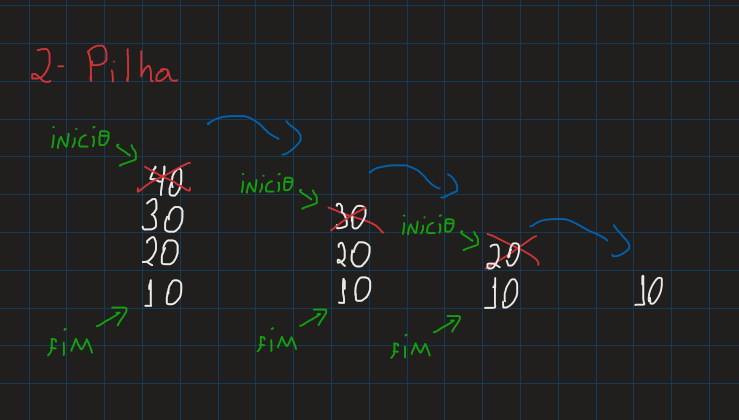 2- Pilha
iNiCiO
40
30
20
10
fiM
iNiCiO
30
20
10
fiM
iNiCiO
20
10
fiM
10